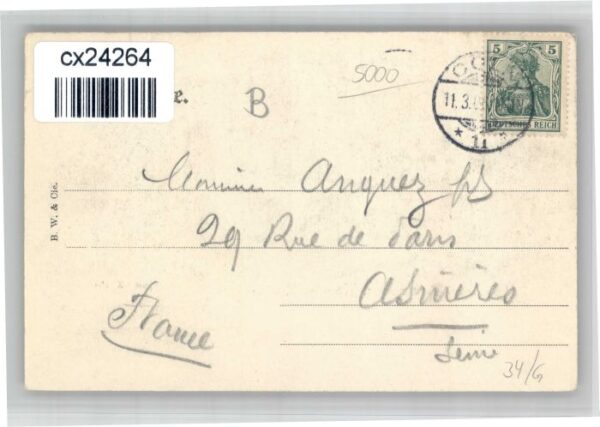 cx24264
e.
B
5000
5 5
DEUTSCHES REICH
11.3.
* 11
B. W. & Cie.
Monsieur Anquez fils
29 Rue de Paris
Asnières
Seine
France
34/G